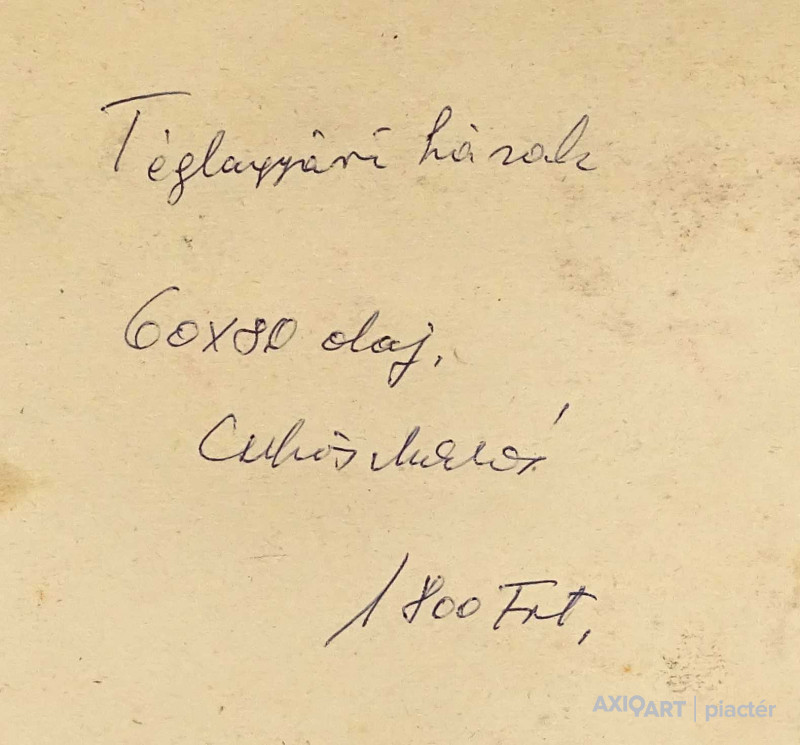 Téglagyári házak
60x80 olaj.
1800 Frt.
AXIOART | piactér